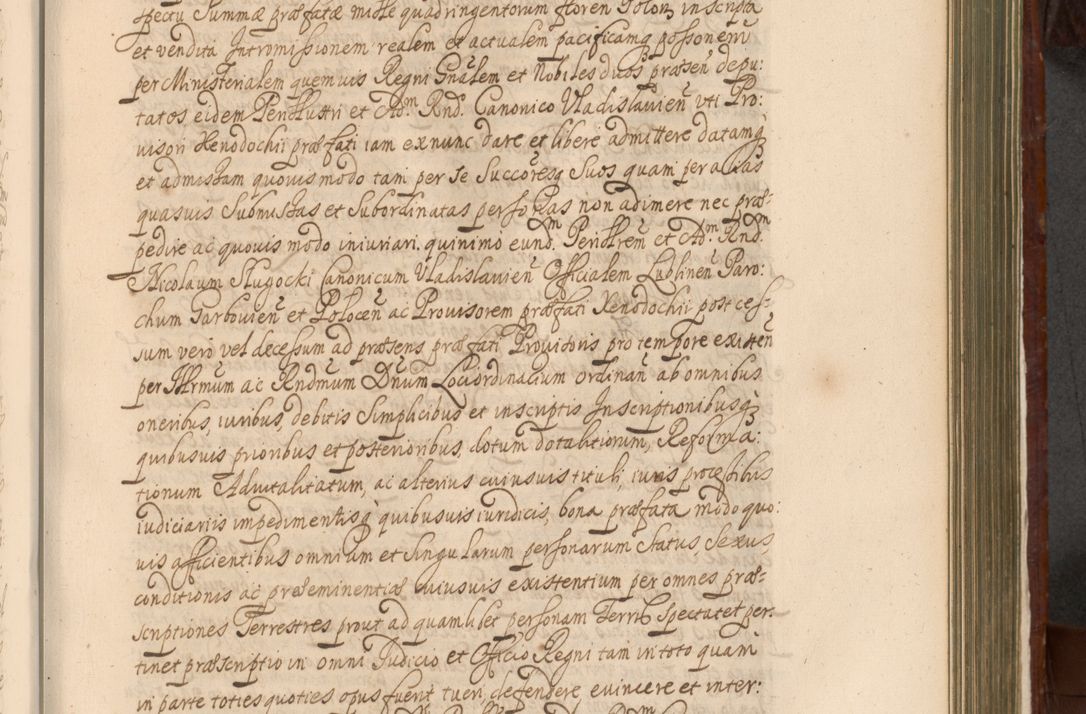 spectu Summæ præfatæ mille quadringentorum floren Polon inscripta
et vendita Intromissionem realem et actualem pacificamq possonem
per Ministerialem quemuis Regni Gnalem et Nobiles duos præsen depu:
tatos eidem Perillustri et Adm Rnd. Canonico Vladislauien vti Pro:
uisori Xenodochii præfati iam exnunc dare et libere admittere datamq
et admissam quouis modo tam per se Succoresq Suos quam per alias
quasuis Submissas et Subordinatas personas non adimere nec præ=
pedire ac quouis modo iniuriari. quinimo eundm Perillrem et Adm Rndm
Nicolaum Slugocki Canonicum Vladislauien Officialem Lublinen Paro:
chum Garbouien et Polocen ac Prouisorem præfati Xenodochii post ces=
sum vero vel decessum ad præsens præfati Prouisoris pro tempore existen
per Illrmum ac Rndmum Dnum Lociordinarium ordinan ab omnibus
oneribus, iuribus, debitis Simplicibus et inscriptis Inscriptionibusq
quibusuis prioribus et posterioribus, dotum dotalitiorum, Reforma:
tionum Aduitalitatum, ac alterius cuiusuis tituli, iuris processibus
iudiciariis impedimentisq quibusuis iuridicis, bona præfata modo quo:
uis afficientibus omnium et Singularum personarum Status Sexus,
conditionis ac præeminentiæ cuiusuis existentium per omnes præ=
scriptiones Terrestres prout ad quamlibet personam Terris Spectat et per:
tinet præscriptio in omni Iudicio et Officio Regni tam in toto quam
in parte toties quoties opus fuerit tueri, defendere euincere et inter: